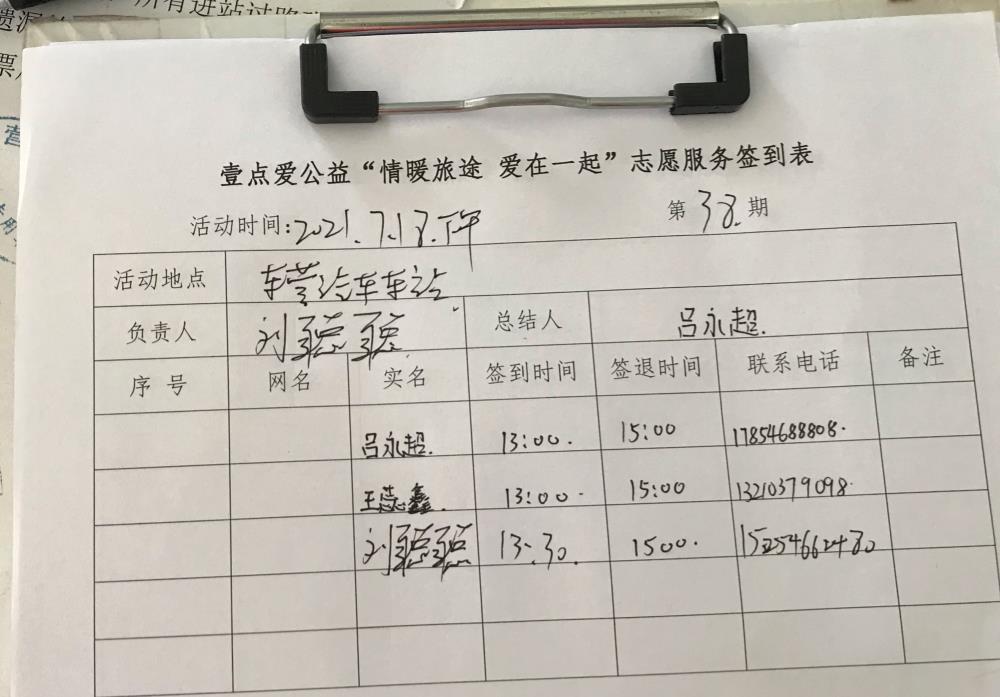 所有进站过路
遗漏
票
营
壹点爱公益“情暖旅途 爱在一起”志愿服务签到表
活动时间:2021.7.18.下午 第38.期
活动地点 东营汽车车站
负责人 刘 总结人 吕永超.
序号 网名 实名 签到时间 签退时间 联系电话 备注
吕永超. 13:00. 15:00 17854688808.
王蕊鑫. 13:00. 15:00 13210379098.
刘 13:30. 1500. 15254662480